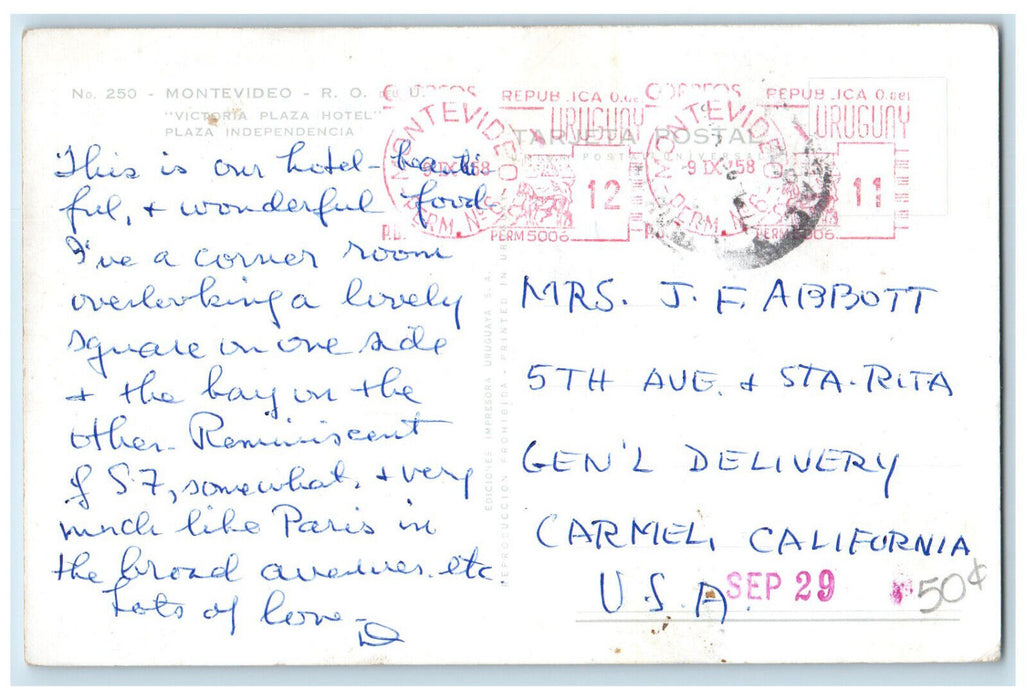 No. 250 - MONTEVIDEO - R. O. DEL U.
"VICTORIA PLAZA HOTEL"
PLAZA INDEPENDENCIA
TARJETA POSTAL
CORREOS
REPUBLICA O. del
URUGUAY
MONTEVIDEO
9 IX 58
12
PERM 5006
CORREOS
REPUBLICA O. del
URUGUAY
MONTEVIDEO
9 IX 58
11
PERM 5006
This is our hotel - beauti
ful, + wonderful food.
I've a corner room
overlooking a lovely
square on one side
+ the bay on the
other. Reminiscent
of S F, somewhat, + very
much like Paris in
the broad avenues. etc
Lots of love -
D
EDICIONES IMPRESORA URUGUAYA S. A.
REPRODUCCION PROHIBIDA - PRINTED IN UR
MRS. J. F. ABBOTT
5TH AVE. + STA. RITA
GEN'L DELIVERY
CARMEL, CALIFORNIA
U.S.A.
SEP 29
50¢